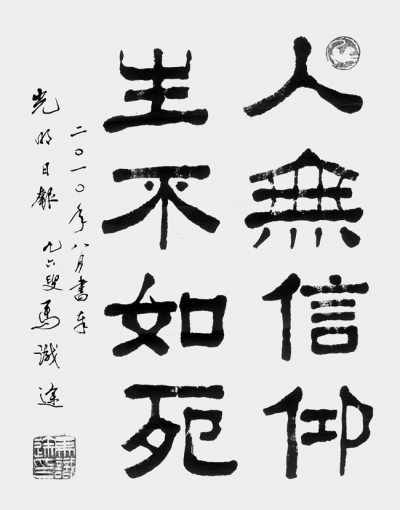 人無信仰
生不如死
二〇一〇年八月書奉
光明日報 九六叟馬識途